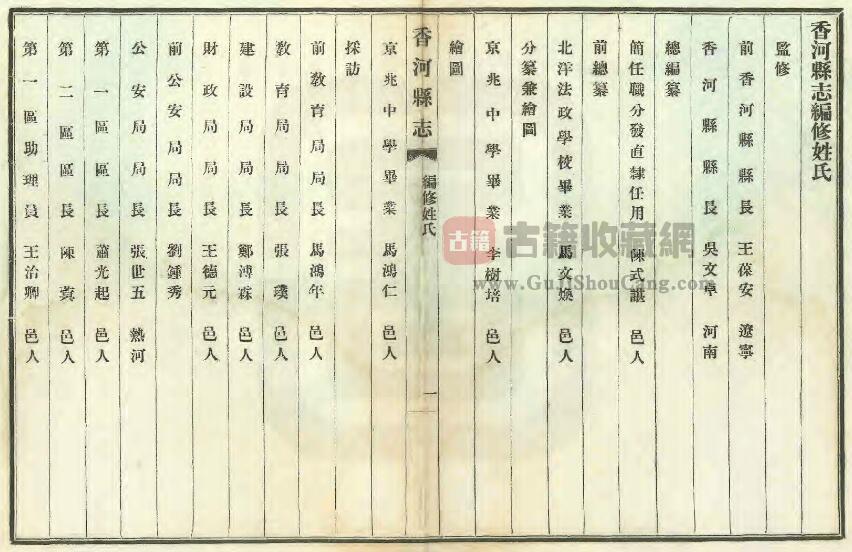 香河縣志編修姓氏
監修
前香河縣縣長 王葆安 遼寧
香河縣縣長 吳文卓 河南
總編纂
簡任職分發直隸任用 陳式諶 邑人
前總纂
北洋法政學校畢業 馬文煥 邑人
分纂兼繪圖
京兆中學畢業 李樹培 邑人
繪圖
香河縣志 編修姓氏 一
京兆中學畢業 馬鴻仁 邑人
採訪
前教育局局長 馬鴻年 邑人
教育局局長 張璞 邑人
建設局局長 鄭溥霖 邑人
財政局局長 王德元 邑人
前公安局局長 劉鍾秀
公安局局長 張世五 熱河
第一區區長 蕭光起 邑人
第二區區長 陳蓂 邑人
第一區助理員 王治卿 邑人
古籍 古籍收藏網
www.GujiShouCang.com